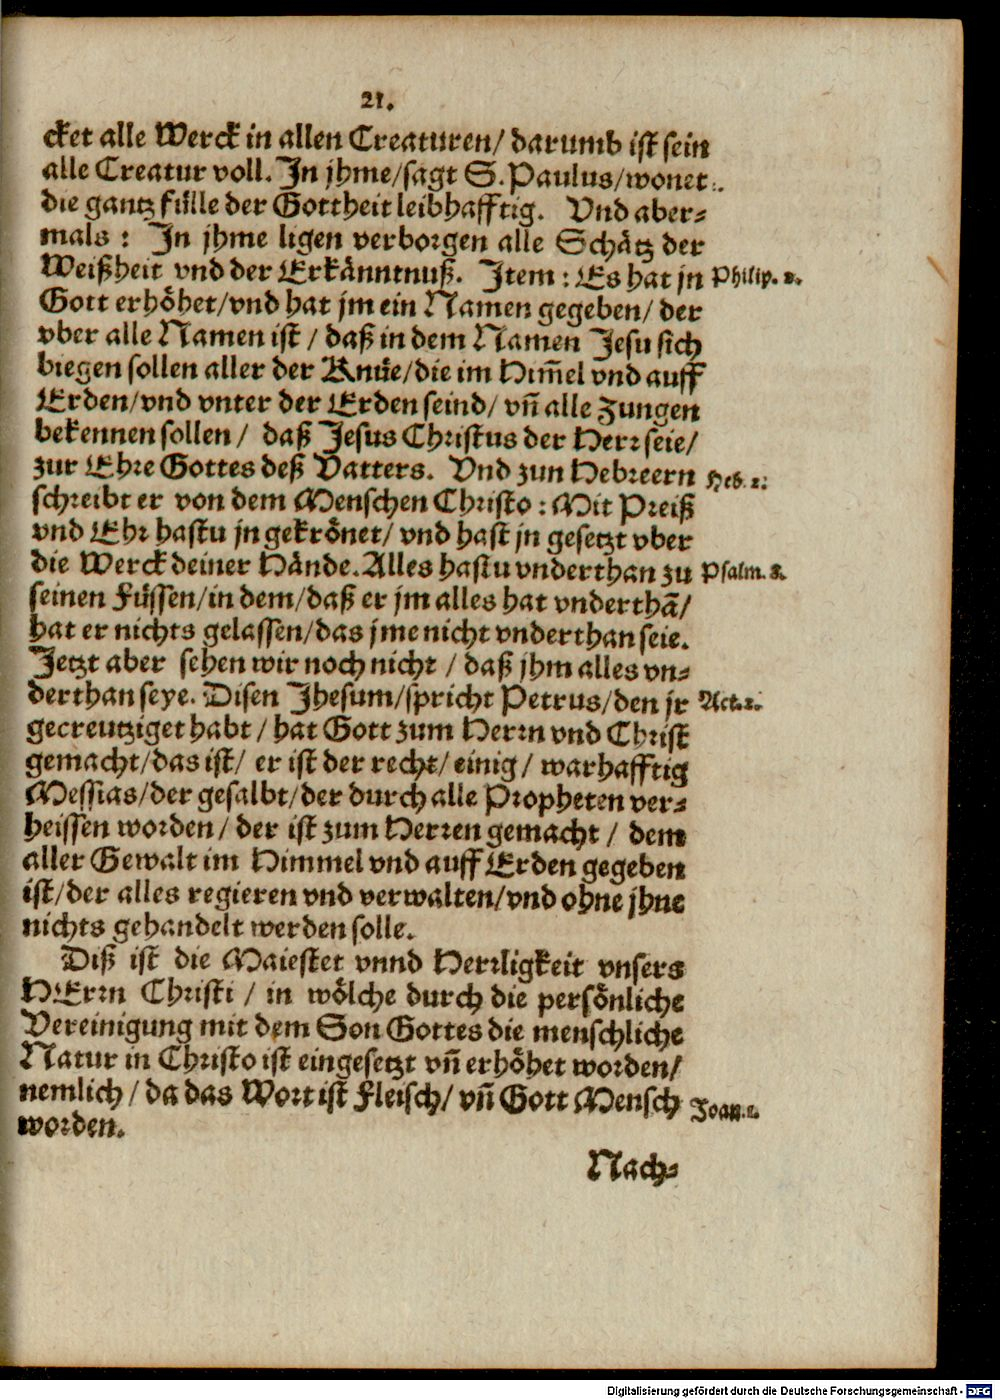 21.
cket alle Werck in allen Creaturen/ darumb ist sein
alle Creatur voll. In jhme/sagt S. Paulus/wonet
die gantz fülle der Gottheit leibhafftig. Vnd aber-
mals: In jhme ligen verborgen alle Schätz der
Weißheit vnd der Erkänntnuß. Item: Es hat jn Philip. 2.
Gott erhöhet/vnd hat jm ein Namen gegeben/ der
vber alle Namen ist / daß in dem Namen Jesu sich
biegen sollen aller der Knüe/die im Him̄el vnd auff
Erden/vnd vnter der Erden seind/ vn̄ alle Zungen
bekennen sollen / daß Jesus Christus der Herr seie/
zur Ehre Gottes deß Vatters. Vnd zun Hebreern Heb. 2.
schreibt er von dem Menschen Christo: Mit Preiß
vnd Ehr hastu jn gekrönet/ vnd hast jn gesetzt vber
die Werck deiner Hände. Alles hastu vnderthan zu Psalm. 8.
seinen Füssen/in dem/daß er jm alles hat vnderthā/
hat er nichts gelassen/das jme nicht vnderthan seie.
Jetzt aber sehen wir noch nicht / daß jhm alles vn-
derthan seye. Disen Jhesum/spricht Petrus/den jr Act. 2.
gecreutziget habt / hat Gott zum Herrn vnd Christ
gemacht/das ist/ er ist der recht/ einig / warhafftig
Messias/der gesalbt/der durch alle Propheten ver-
heissen worden / der ist zum Herren gemacht / dem
aller Gewalt im Himmel vnd auff Erden gegeben
ist/der alles regieren vnd verwalten/vnd ohne jhne
nichts gehandelt werden solle.
Diß ist die Maiestet vnnd Herrligkeit vnsers
HErrn Christi / in wölche durch die persönliche
Vereinigung mit dem Son Gottes die menschliche
Natur in Christo ist eingesetzt vn̄ erhöhet worden/
nemlich / da das Wort ist Fleisch/ vn̄ Gott Mensch Joan. 1.
worden.
Nach-
Digitalisierung gefördert durch die Deutsche Forschungsgemeinschaft - DFG